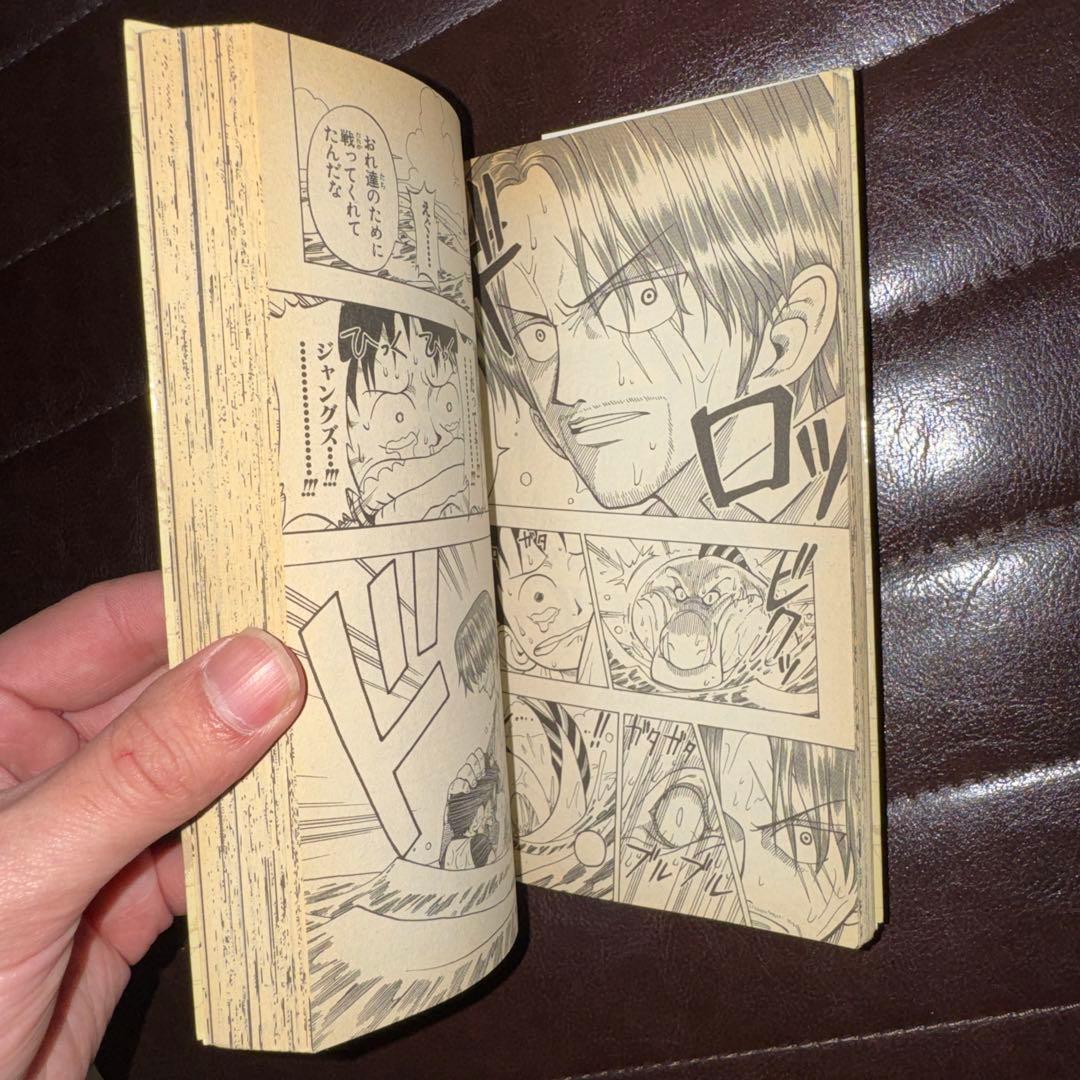 ギロッ
ビクッ
ガタ
!!
ガタガタ
ブルブル
えぐ……
おれ達のために
戦ってくれて
たんだな
ひっく
ひっく
ジャングズ…!!!
…………!!!